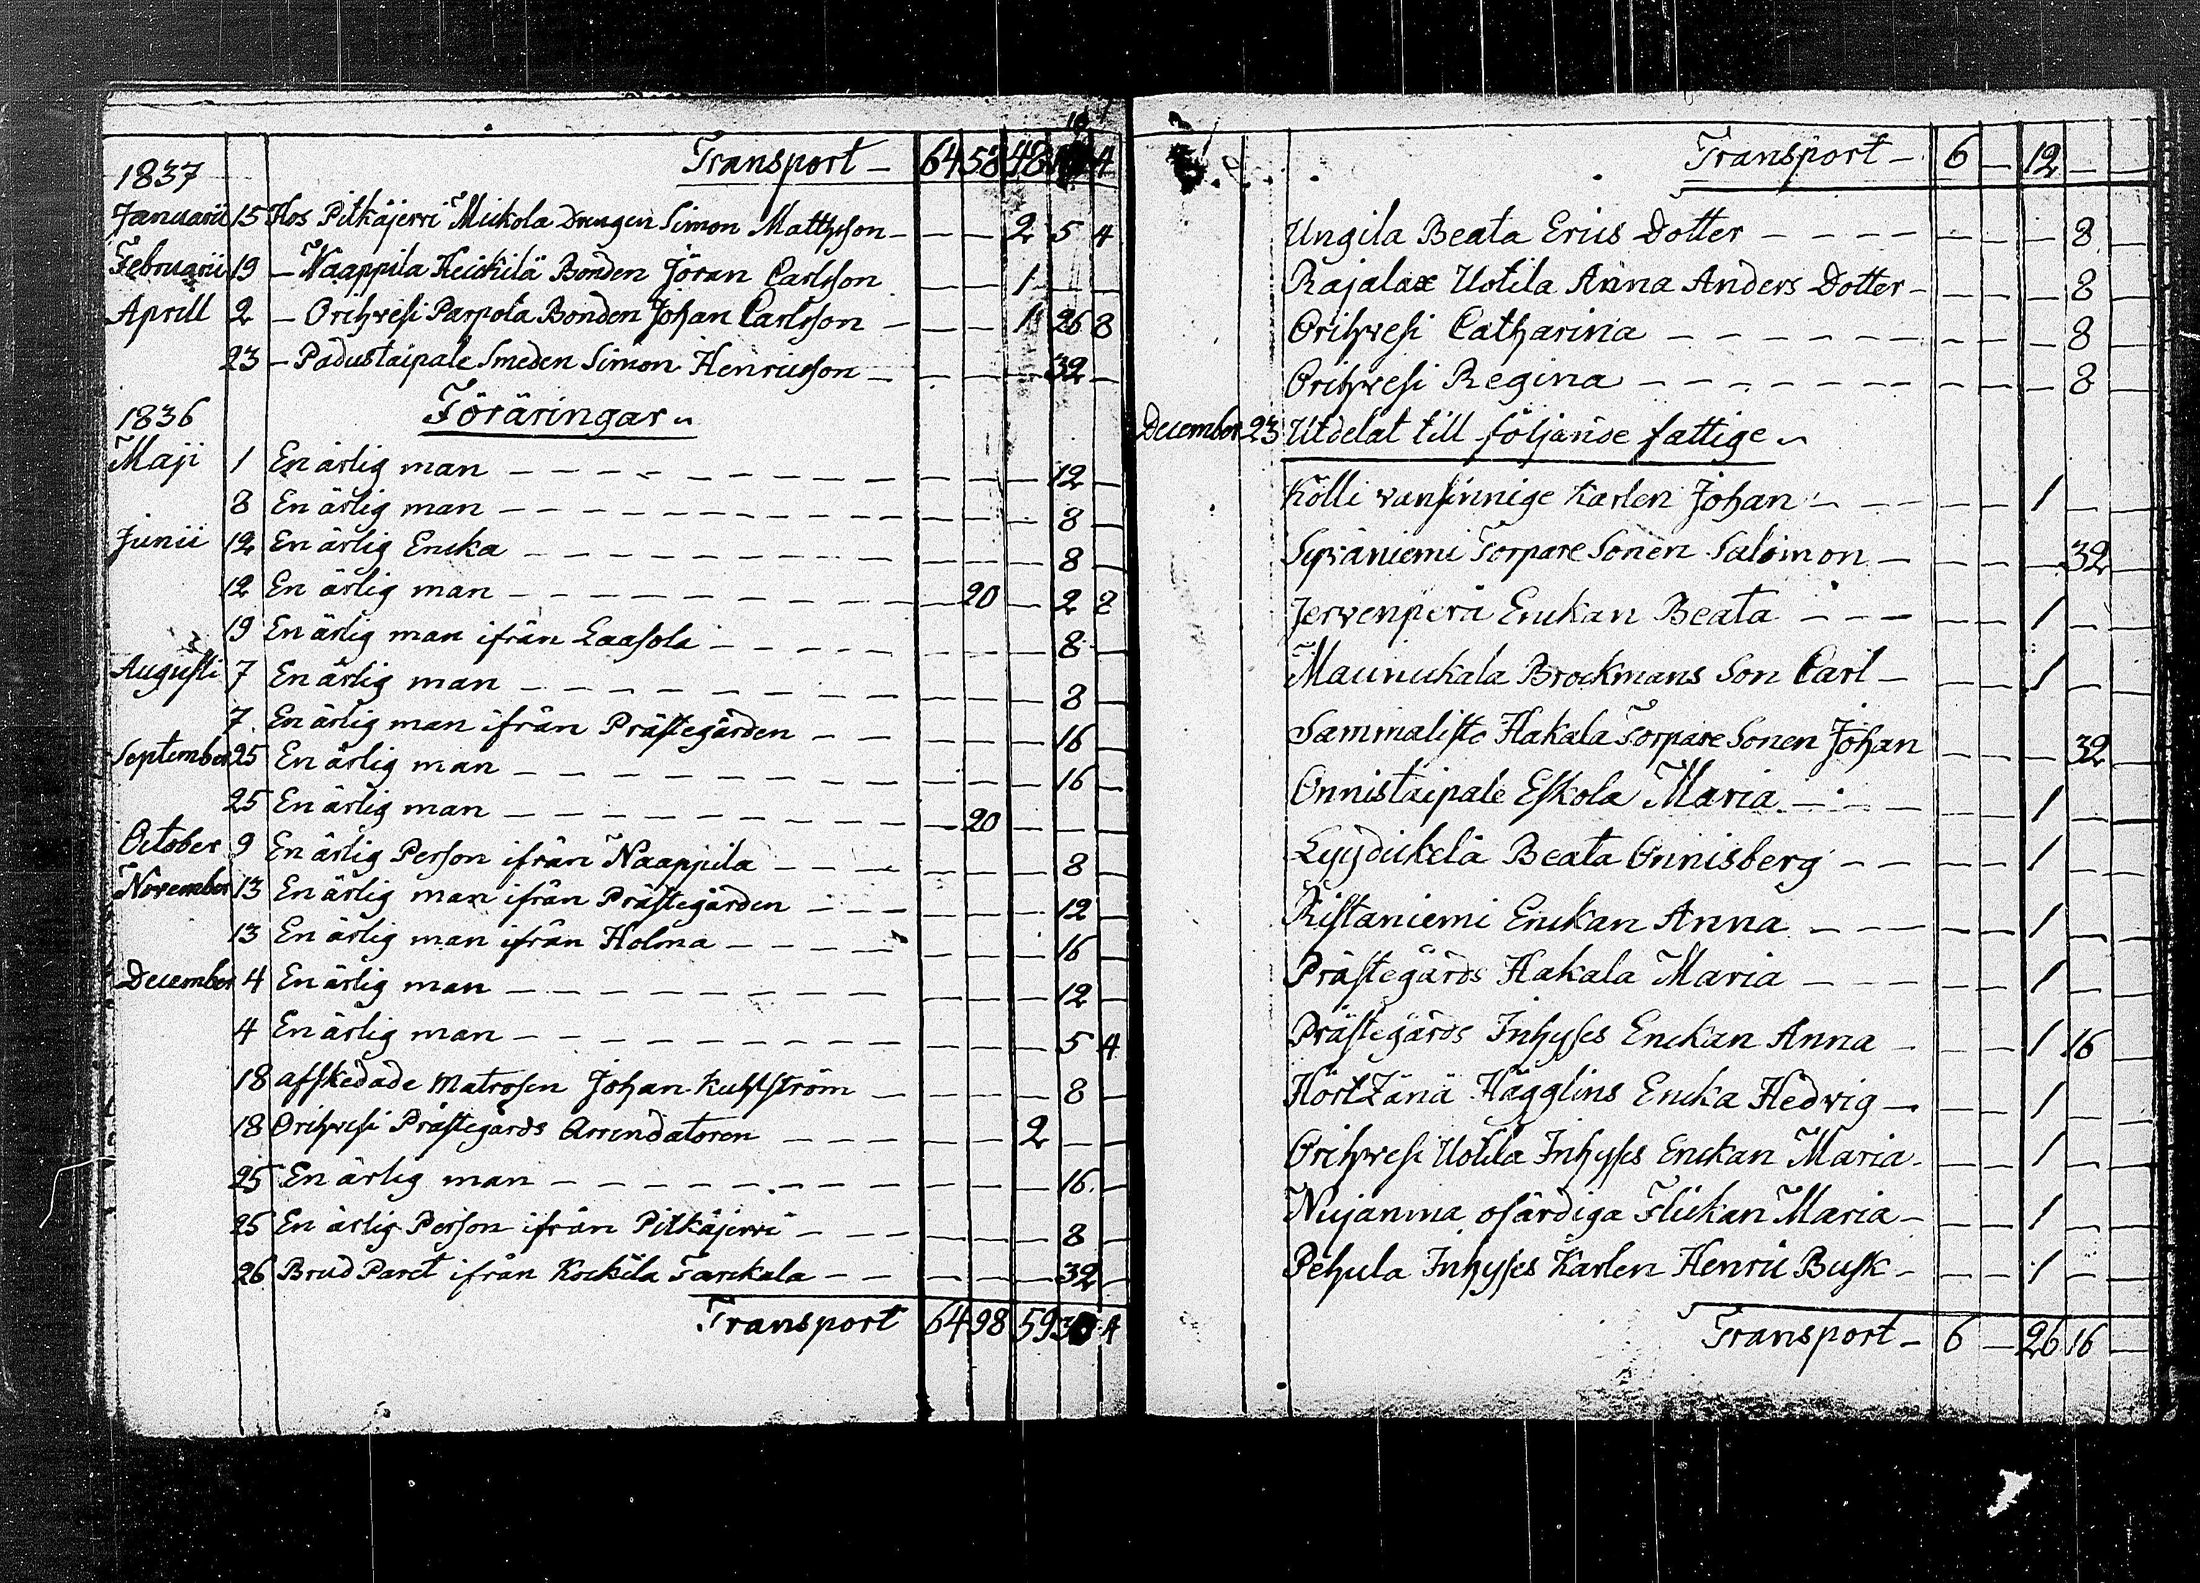 Transport - 64 58 48 16 4
1837
Januarii 15 Hos Pitkäjerri Mickola Drengen Simon Mattsson - - - 2 5 4
Februarii 19 - Naappila Heickilä Bonden Jöran Carlsson - - 1 - -
Aprill 2 - Orihvesi Parpola Bonden Johan Carlsson - - - 1 26 8
23 - Padustaipale Smeden Simon Henricsson - - - - 32 -
1836 Föräringar
Maji 1 En ärlig man - - - 12 -
8 En ärlig man - - - 8 -
Junii 12 En ärlig Encka - - - 8 -
12 En ärlig man - - 20 - 2 8
19 En ärlig man ifrån Laasola - - - 8 -
Augusti 7 En ärlig man - - - 8 -
7 En ärlig man ifrån Prästegården - - - 16 -
September 25 En ärlig man - - - 16 -
25 En ärlig man - - 20 - - -
October 9 En ärlig Person ifrån Naappila - - - 8 -
November 13 En ärlig man ifrån Prästegården - - - 12 -
13 En ärlig man ifrån Holma - - - 16 -
December 4 En ärlig man - - - 12 -
4 En ärlig man - - - 5 4
18 afskedade Matrosen Johan - - - 8 -
18 Orihvesi Prästegårds Arrendatoren - - 2 - -
25 En ärlig man - - - 16 -
25 En ärlig Person ifrån Pitkäjervi - - - 8 -
26 Brud Paret ifrån Kockila Tarckala - - - 32 -
Transport 64 98 59 4
Transport - 6 - 12 - -
Ungila Beata Erics Dotter - - - 8 -
Rajalax Uotila Anna Anders Dotter - - - 8 -
Orihvesi Catharina - - - 8 -
Orihvesi Regina - - - 8 -
December 23 Utdelat till följande fattige
Kölli vansinnige Karlen Johan - - - 1 - -
Syväniemi Torpare Sonen Salomon - - - - 32 -
Jervenperä Enckan Beata - - - 1 - -
Maunuckala Brockmans Son Carl - - - 1 - -
Sammalisto Hakala Torpare Sonen Johan - - - 32 -
Onnistaipale Eskola Maria - - - 1 - -
Lyydickelä Beata Onnisberg - - - 1 - -
Ristaniemi Enckan Anna - - - 1 - -
Prästegårds Hakala Maria - - - 1 - -
Prästegårds Inhyses Enckan Anna - - - 1 16 -
Hörtzänä Hägglins Encka Hedvig - - - 1 - -
Orihvesi Uotila Inhyses Enckan Maria - - - 1 - -
Nujanma ofärdiga Flickan Maria - - - 1 - -
Pehula Inhyses Karlen Henric Busk - - - 1 - -
Transport - 6 - 26 16 -